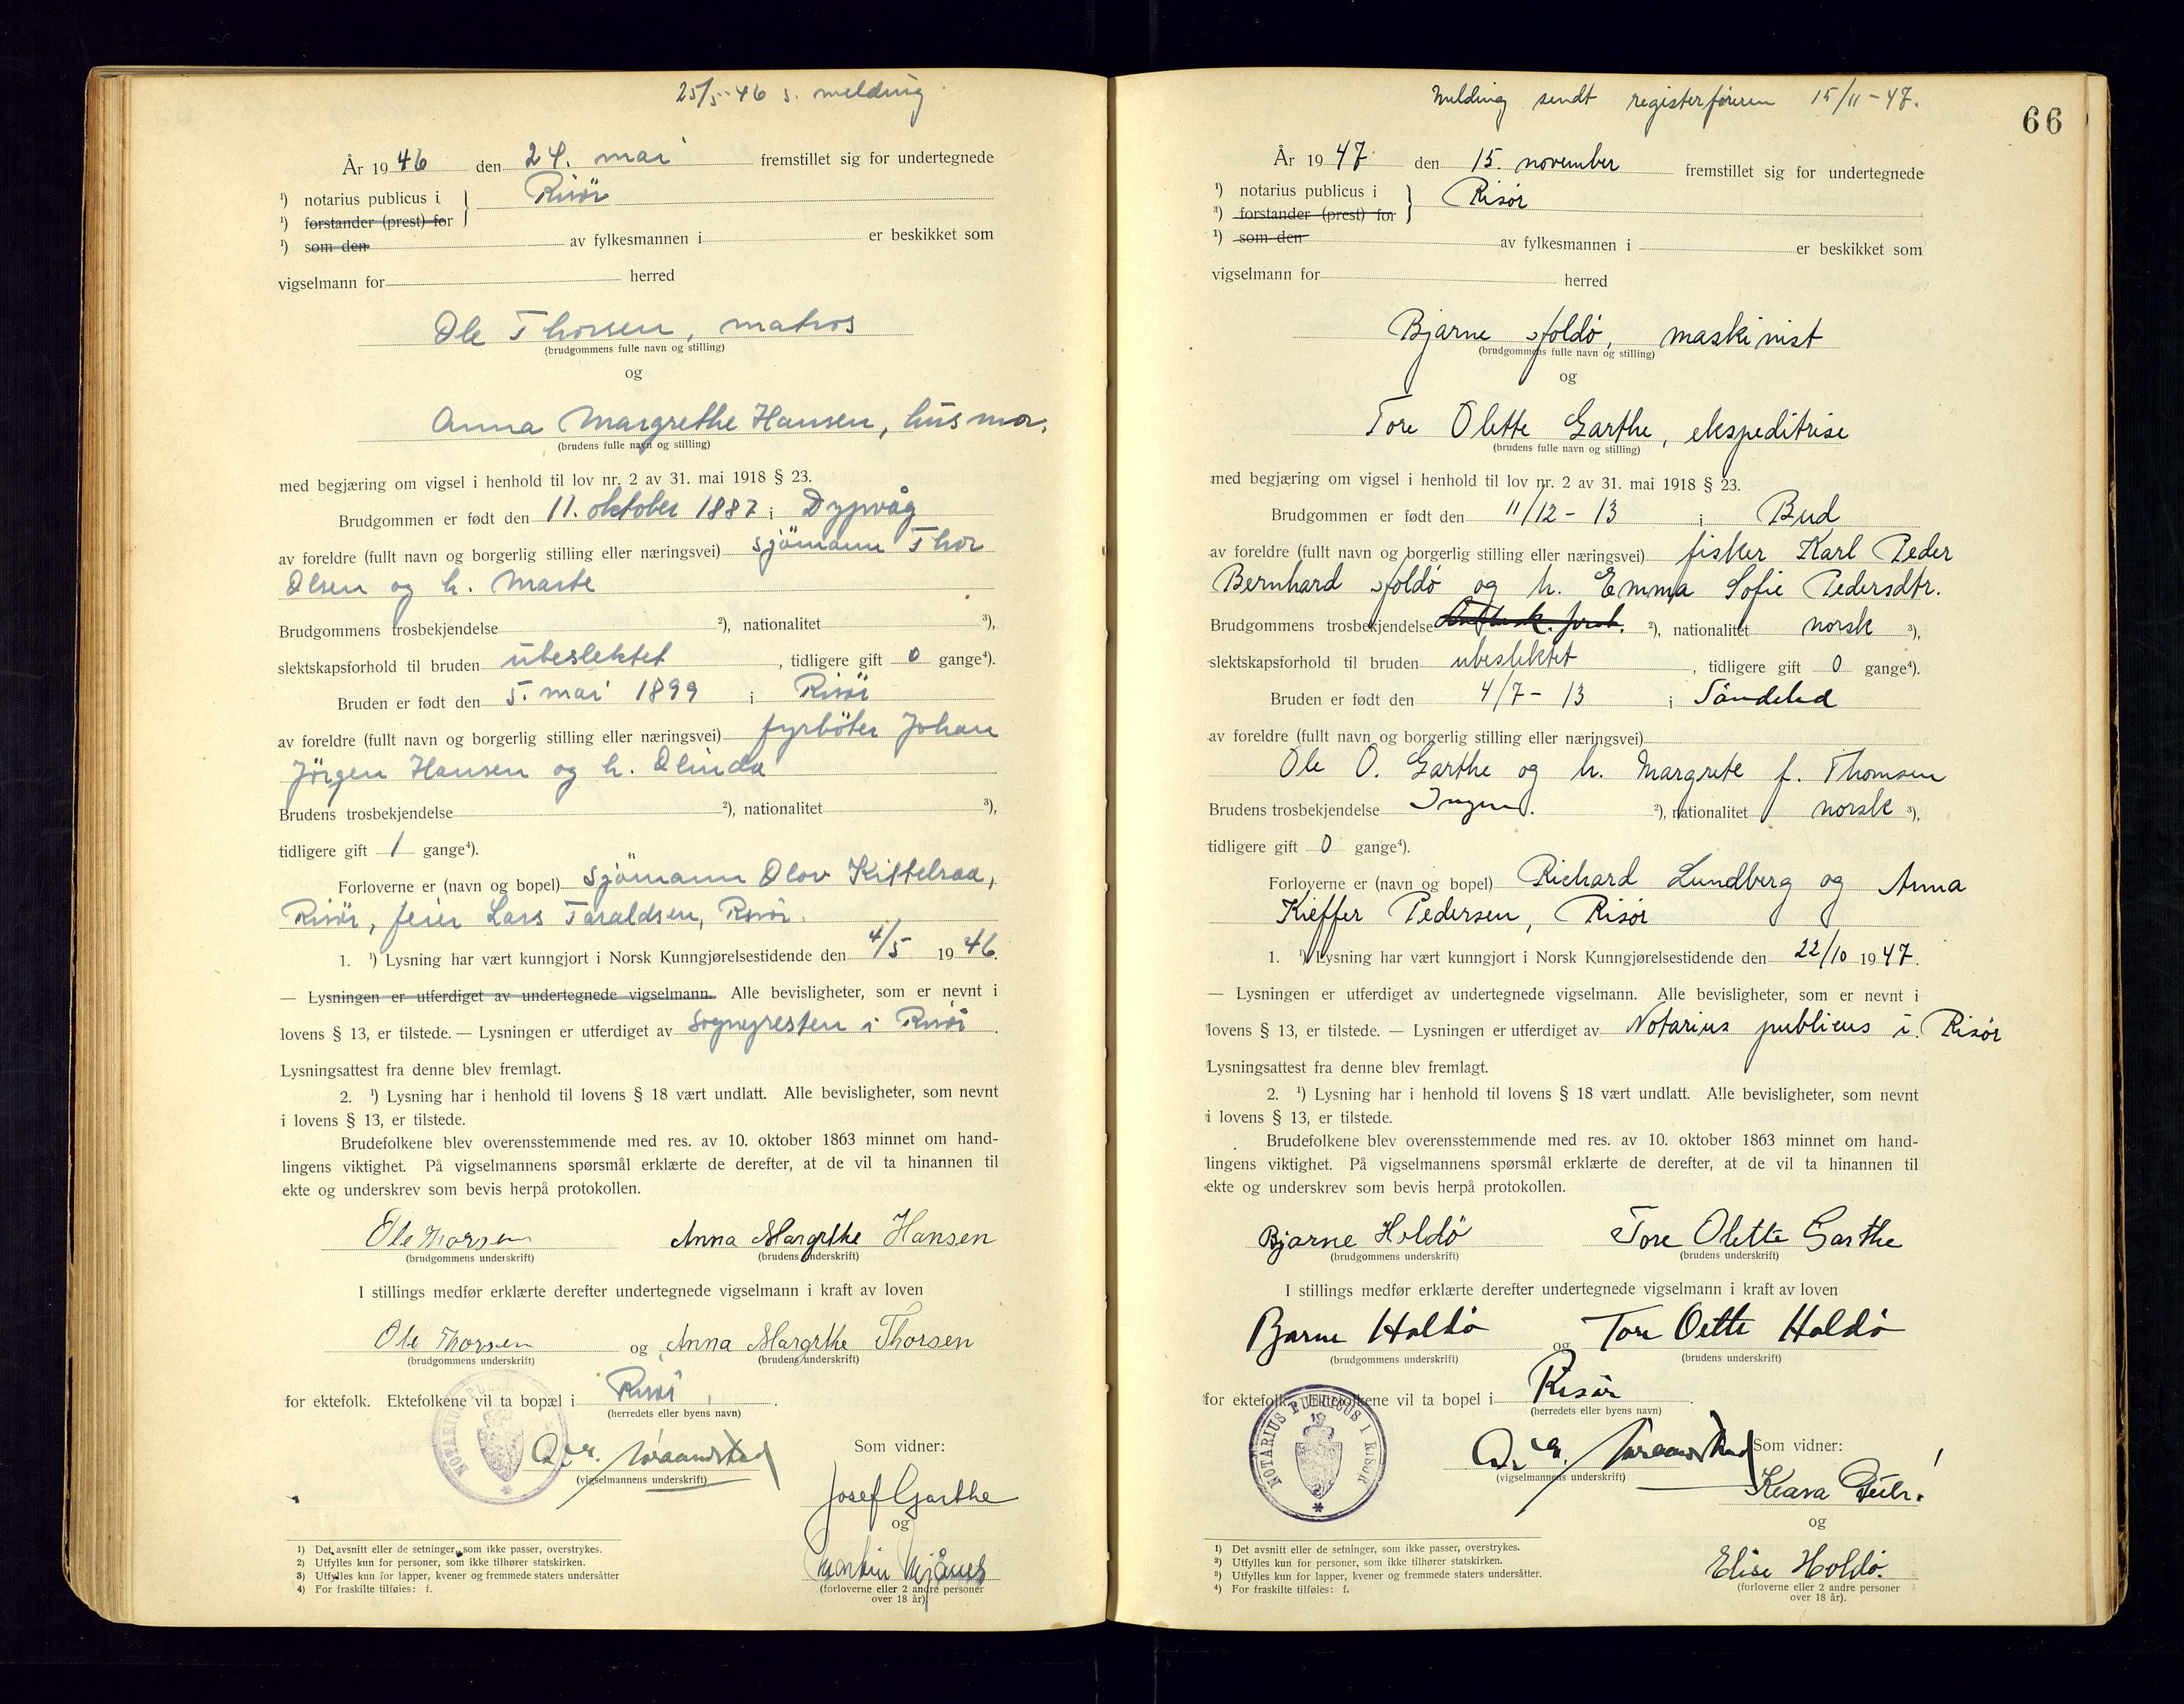 25/5-46 s. melding
År 1946 den 24. mai fremstillet sig for undertegnede
¹) notarius publicus i } Risör
¹) forstander (prest) for
¹) som den av fylkesmannen i er beskikket som
vigselmann for herred
Ole Thorsen, matros
(brudgommens fulle navn og stilling)
og
Anna Margrethe Hansen, husmor.
(brudens fulle navn og stilling)
med begjæring om vigsel i henhold til lov nr. 2 av 31. mai 1918 § 23.
Brudgommen er født den 11. oktober 1887 i Dypvåg
av foreldre (fullt navn og borgerlig stilling eller næringsvei) sjömann Thor
Olsen og h. Marte
Brudgommens trosbekjendelse ²), nationalitet ³),
slektskapsforhold til bruden ubeslektet, tidligere gift 0 gange⁴).
Bruden er født den 5. mai 1899 i Risör
av foreldre (fullt navn og borgerlig stilling eller næringsvei) fyrböter Johan
Jörgen Hansen og h. Olinda
Brudens trosbekjendelse ²), nationalitet ³),
tidligere gift 1 gange⁴).
Forloverne er (navn og bopel) Sjömann Olov Kittelraa,
Risör, feier Lars Taraldsen, Risör.
1. ¹) Lysning har vært kunngjort i Norsk Kunngjørelsestidende den 4/5 1946.
— Lysningen er utferdiget av undertegnede vigselmann. Alle bevisligheter, som er nevnt i
lovens § 13, er tilstede. — Lysningen er utferdiget av Sogneresten i Risör.
Lysningsattest fra denne blev fremlagt.
2. ¹) Lysning har i henhold til lovens § 18 vært undlatt. Alle bevisligheter, som nevnt
i lovens § 13, er tilstede.
Brudefolkene blev overensstemmende med res. av 10. oktober 1863 minnet om hand-
lingens viktighet. På vigselmannens spørsmål erklærte de derefter, at de vil ta hinannen til
ekte og underskrev som bevis herpå protokollen.
Ole Thorsen Anna Margrthe Hansen
(brudgommens underskrift) (brudens underskrift)
I stillings medfør erklærte derefter undertegnede vigselmann i kraft av loven
Ole Thorsen og Anna Margrthe Thorsen
(brudgommens underskrift) (brudens underskrift)
for ektefolk. Ektefolkene vil ta bopæl i Risör.
(herredets eller byens navn)
NOTARIUS
(vigselmannens underskrift)
Som vidner:
Josef Garthe
og
Martin
(forloverne eller 2 andre personer
over 18 år).
1) Det avsnitt eller de setninger, som ikke passer, overstrykes.
2) Utfylles kun for personer, som ikke tilhører statskirken.
3) Utfylles kun for lapper, kvener og fremmede staters undersåtter
4) For fraskilte tilføies: f.
Melding sendt registerføreren 15/11-47.
66
År 1947 den 15. november fremstillet sig for undertegnede
¹) notarius publicus i } Risør
¹) forstander (prest) for
¹) som den av fylkesmannen i er beskikket som
vigselmann for herred
Bjarne Holdø, maskinist
(brudgommens fulle navn og stilling)
og
Tore Olette Garthe, ekspeditrise
(brudens fulle navn og stilling)
med begjæring om vigsel i henhold til lov nr. 2 av 31. mai 1918 § 23.
Brudgommen er født den 11/12-13 i Bud
av foreldre (fullt navn og borgerlig stilling eller næringsvei) fisker Karl Peder
Bernhard Holdø og h. Emma Sofie Pedersdtr.
Brudgommens trosbekjendelse ²), nationalitet norsk ³),
slektskapsforhold til bruden ubeslektet, tidligere gift 0 gange⁴).
Bruden er født den 4/7-13 i Søndeled
av foreldre (fullt navn og borgerlig stilling eller næringsvei)
Ole O. Garthe og h. Margrete f. Thomsen
Brudens trosbekjendelse Ingen. ²), nationalitet norsk ³),
tidligere gift 0 gange⁴).
Forloverne er (navn og bopel) Richard Lundberg og Anna
Kieffer Pedersen, Risør
1. ¹) Lysning har vært kunngjort i Norsk Kunngjørelsestidende den 22/10 1947.
— Lysningen er utferdiget av undertegnede vigselmann. Alle bevisligheter, som er nevnt i
lovens § 13, er tilstede. — Lysningen er utferdiget av Notarius publicus i Risør
Lysningsattest fra denne blev fremlagt.
2. ¹) Lysning har i henhold til lovens § 18 vært undlatt. Alle bevisligheter, som nevnt
i lovens § 13, er tilstede.
Brudefolkene blev overensstemmende med res. av 10. oktober 1863 minnet om hand-
lingens viktighet. På vigselmannens spørsmål erklærte de derefter, at de vil ta hinannen til
ekte og underskrev som bevis herpå protokollen.
Bjarne Holdø Tore Olette Garthe
(brudgommens underskrift) (brudens underskrift)
I stillings medfør erklærte derefter undertegnede vigselmann i kraft av loven
Bjarne Holdø og Tore Oette Holdø
(brudgommens underskrift) (brudens underskrift)
for ektefolk. Ektefolkene vil ta bopel i Risør.
(herredets eller byens navn)
NOTARIUS PUBLICUS I RISØR
(vigselmannens underskrift)
Som vidner:
Klara
og
Elise Holdø.
(forloverne eller 2 andre personer
over 18 år).
1) Det avsnitt eller de setninger, som ikke passer, overstrykes.
²) Utfylles kun for personer, som ikke tilhører statskirken.
³) Utfylles kun for lapper, kvener og fremmede staters undersåtter.
⁴) For fraskilte tilføies: f.